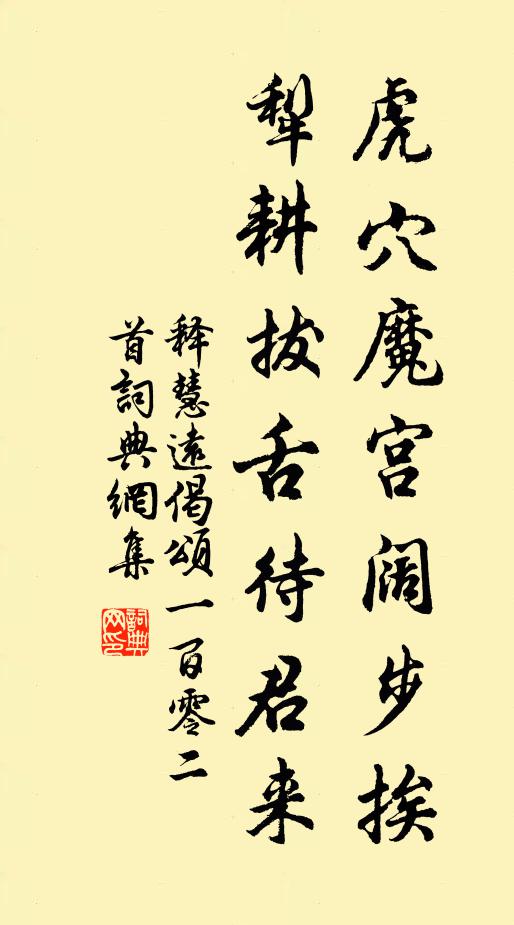 虎穴魔宫阔步挨
犁耕拔舌待君来
释慧遠偈頌一百零二
首詞典網集
詞典
网印